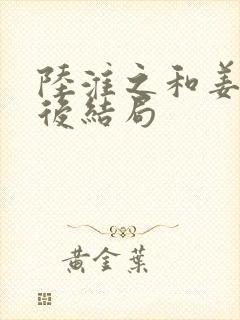 陸淮之和姜
後結局
黃金葉